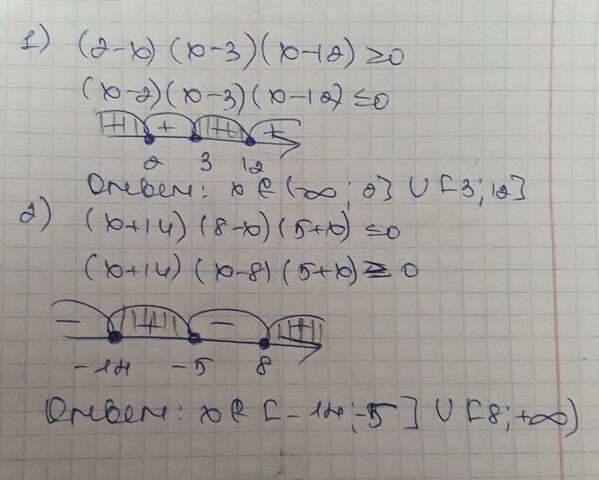 1) (2-x) (x-3)(x-12) ≥0
(x-2)(x-3)(x-12) ≤0
+ + + +
2 3 12
Ответ: x ∈ (-∞; 2] ∪ [3; 12]
2) (x+14) (8-x) (5+x) ≤0
(x+14) (x-8) (5+x) ≥ 0
- + - +
-14 -5 8
Ответ: x ∈ [-14; -5] ∪ [8; +∞)